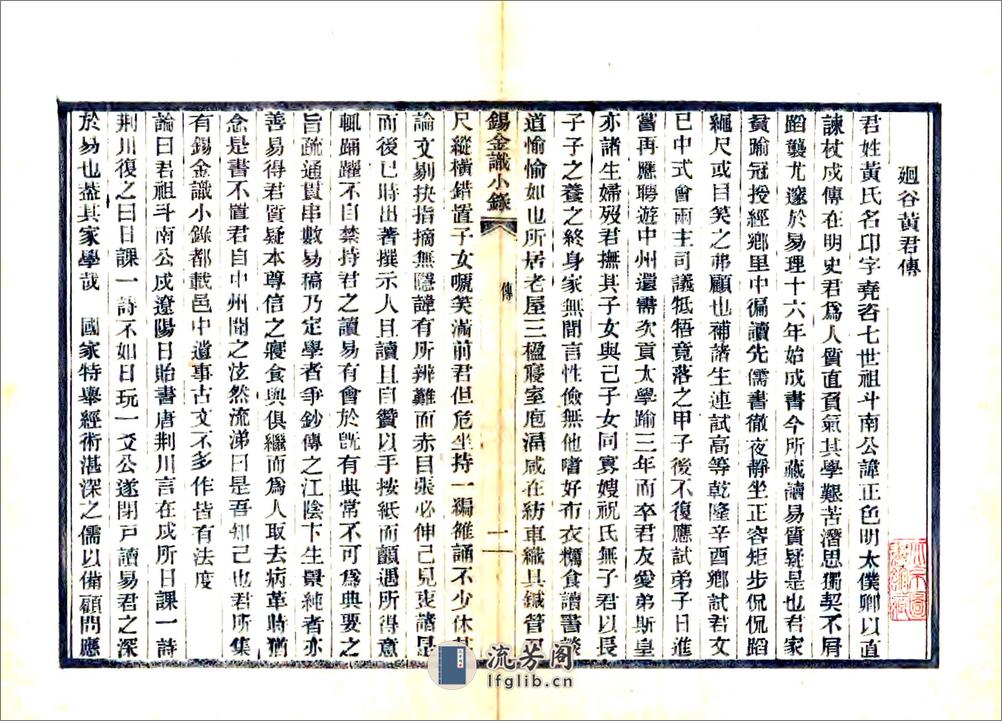 廻谷黃君傳
君姓黃氏名卬字堯咨七世祖斗南公諱正色明太僕卿以直
諫杖戍傳在明史君爲人質直負氣其學艱苦潛思獨契不屑
蹈襲尤邃於易理十六年始成書今所藏讀易質疑是也君家
貧踰冠授經鄉里中徧讀先儒書徹夜靜坐正容矩步侃侃蹈
繩尺或目笑之弗顧也補諸生連試高等乾隆辛酉鄉試君文
已中式會兩主司議牴牾竟落之甲子後不復應試弟子日進
嘗再應聘遊中州還需次貢太學踰三年而卒君友愛弟斯皇
亦諸生婦歿君撫其子女與己子女同寡嫂祝氏無子君以長
子子之養之終身家無閒言性儉無他嗜好布衣糲食讀書談
道愉愉如也所居老屋三楹寢室庖湢咸在紡車織具鍼管刀
錫金識小錄
傳
一
尺縱橫錯置子女嚦笑滿前君但危坐持一編雒誦不少休其
論文剔抉指摘無隱諱有所辨難面赤目張必伸己見衷諸是
而後已時出著撰示人且讀且自贊以手按紙而顫遇所得意
輒踊躍不自禁持君之讀易有會於旣有典常不可爲典要之
旨疏通貫串數易稿乃定學者爭鈔傳之江陰卞生景純者亦
善易得君質疑本尊信之寢食與俱繼而爲人取去病革時猶
念是書不置君自中州聞之泫然流涕曰是吾知己也君所集
有錫金識小錄都載邑中遺事古文不多作皆有法度
論曰君祖斗南公戍遼陽日貽書唐荆川言在戍所日課一詩
荆川復之曰日課一詩不如日玩一爻公遂閉戸讀易君之深
於易也蓋其家學哉 國家特舉經術湛深之儒以備顧問應
流芳阁
lfglib.cn